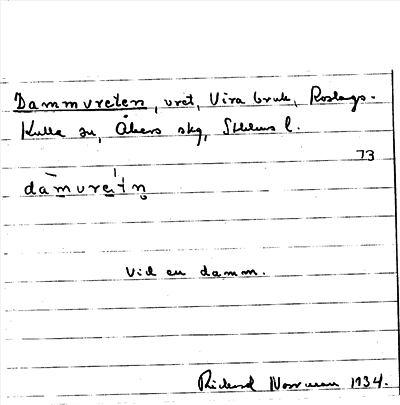 Dammvreten, vret, Vira bruk, Roslags-
Kulla sn, Åkers skg, Sthlms l.
73
dàmvre̱tn̥
Vid en damm.
Rickard Norrman 1934.